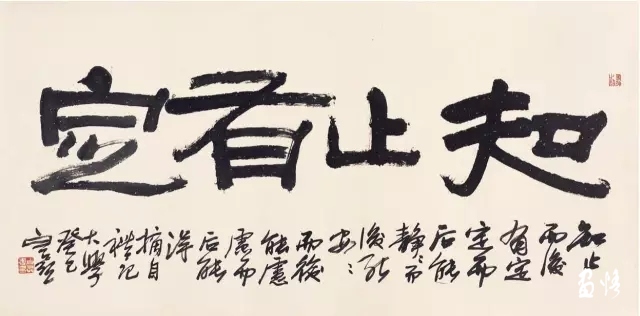 知止有定
知止
而後
有定
定而
后能
静〻而
後能
安〻
而後
能慮
慮而
后能
得
摘自
禮記
大學
癸巳